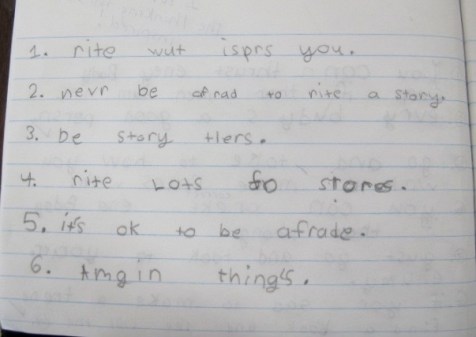 1. rite wut isprs you.
2. nevr be afrad to rite a story.
3. be story tlers.
4. rite LOtS fo stores.
5. it's ok to be afrade.
6. Amgin thing's.